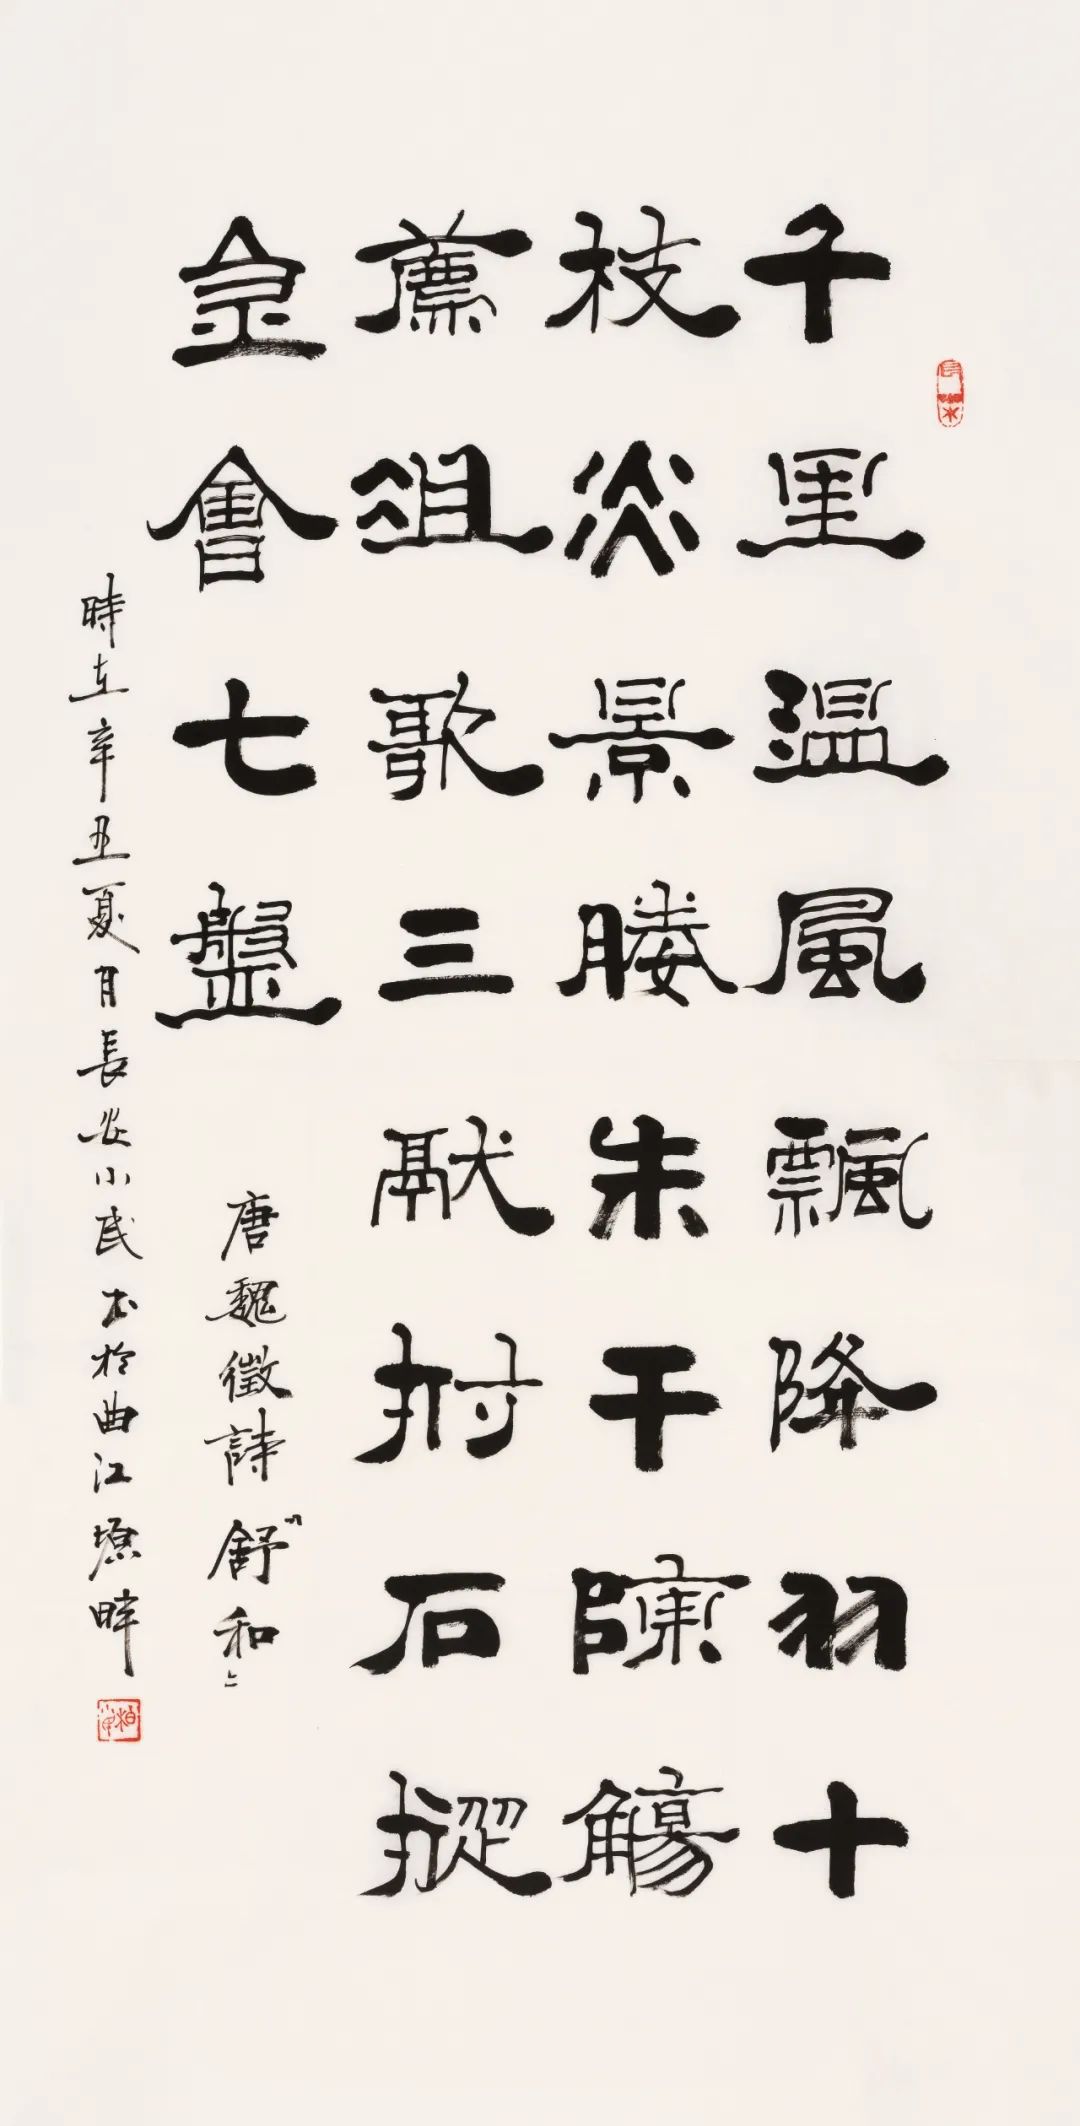 千里溫風飄降羽十
枝炎景媵朱干陳觴
薦俎歌三獻拊石摐
金會七盤
唐魏徵詩舒和
時在辛丑夏月長安小民书於曲江塬畔